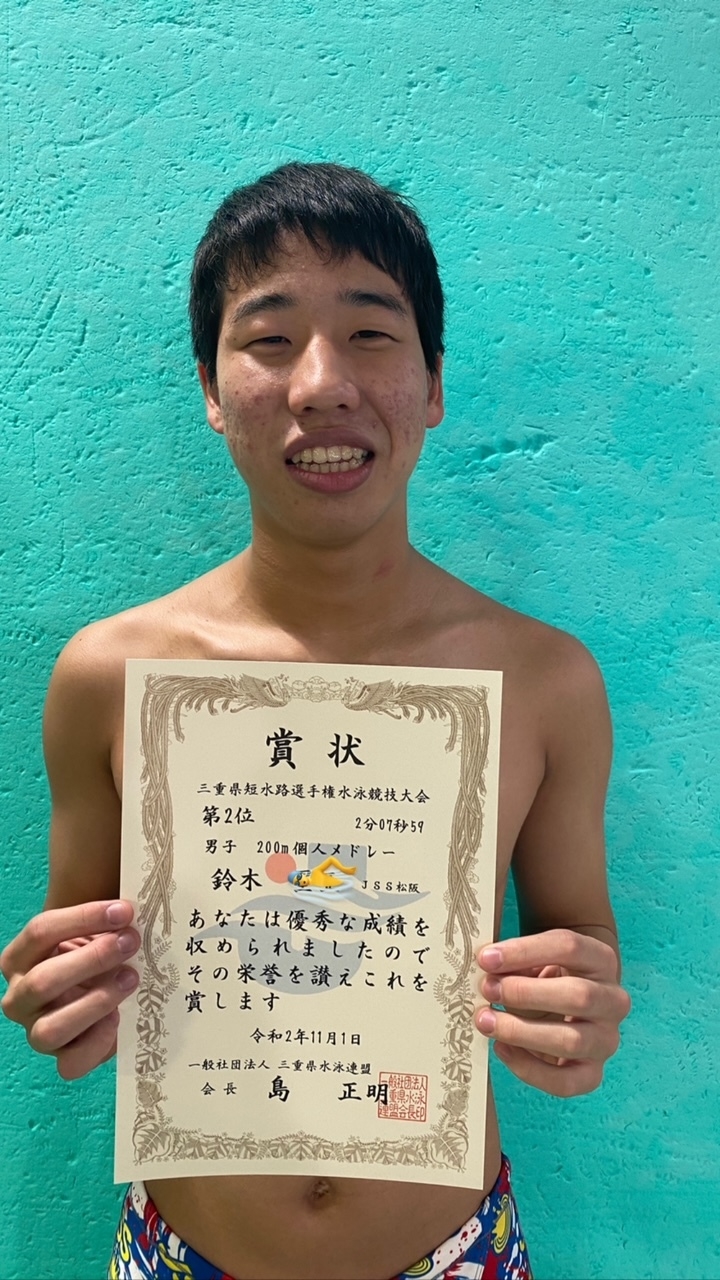 賞状
三重県短水路選手権水泳競技大会
第2位
2分07秒59
男子 200m個人メドレー
鈴木 JSS松阪
あなたは優秀な成績を
収められましたので
その栄誉を讃えこれを
賞します
令和2年11月1日
一般社団法人 三重県水泳連盟
会長 島 正明
一般社団法人
三重県水泳
連盟会長印